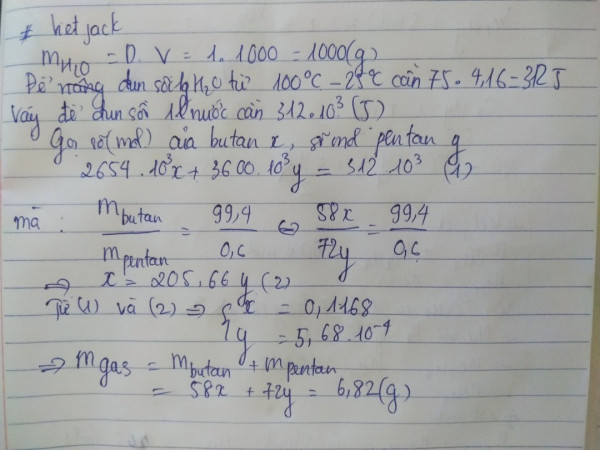 # hetjack
mH2O = D. V = 1. 1000 = 1000(g)
Để nâng đun sôi 1g H2O từ 100°C - 25°C cần 75. 4,16 = 312 J
Vậy để đun sôi 1l nước cần 312.10³ (J)
Gọi số(mol) của butan x, số mol pentan y
2654.10³x + 3600.10³y = 312 10³ (1)
mà : mbutan / mpentan = 99,4 / 0,6 ⇔ 58x / 72y = 99,4 / 0,6
⇒ x = 205,66 y (2)
Từ (1) và (2) ⇒ { x = 0,1168
y = 5,68.10⁻⁴
⇒ mgas = mbutan + mpentan
= 58x + 72y = 6,82(g)